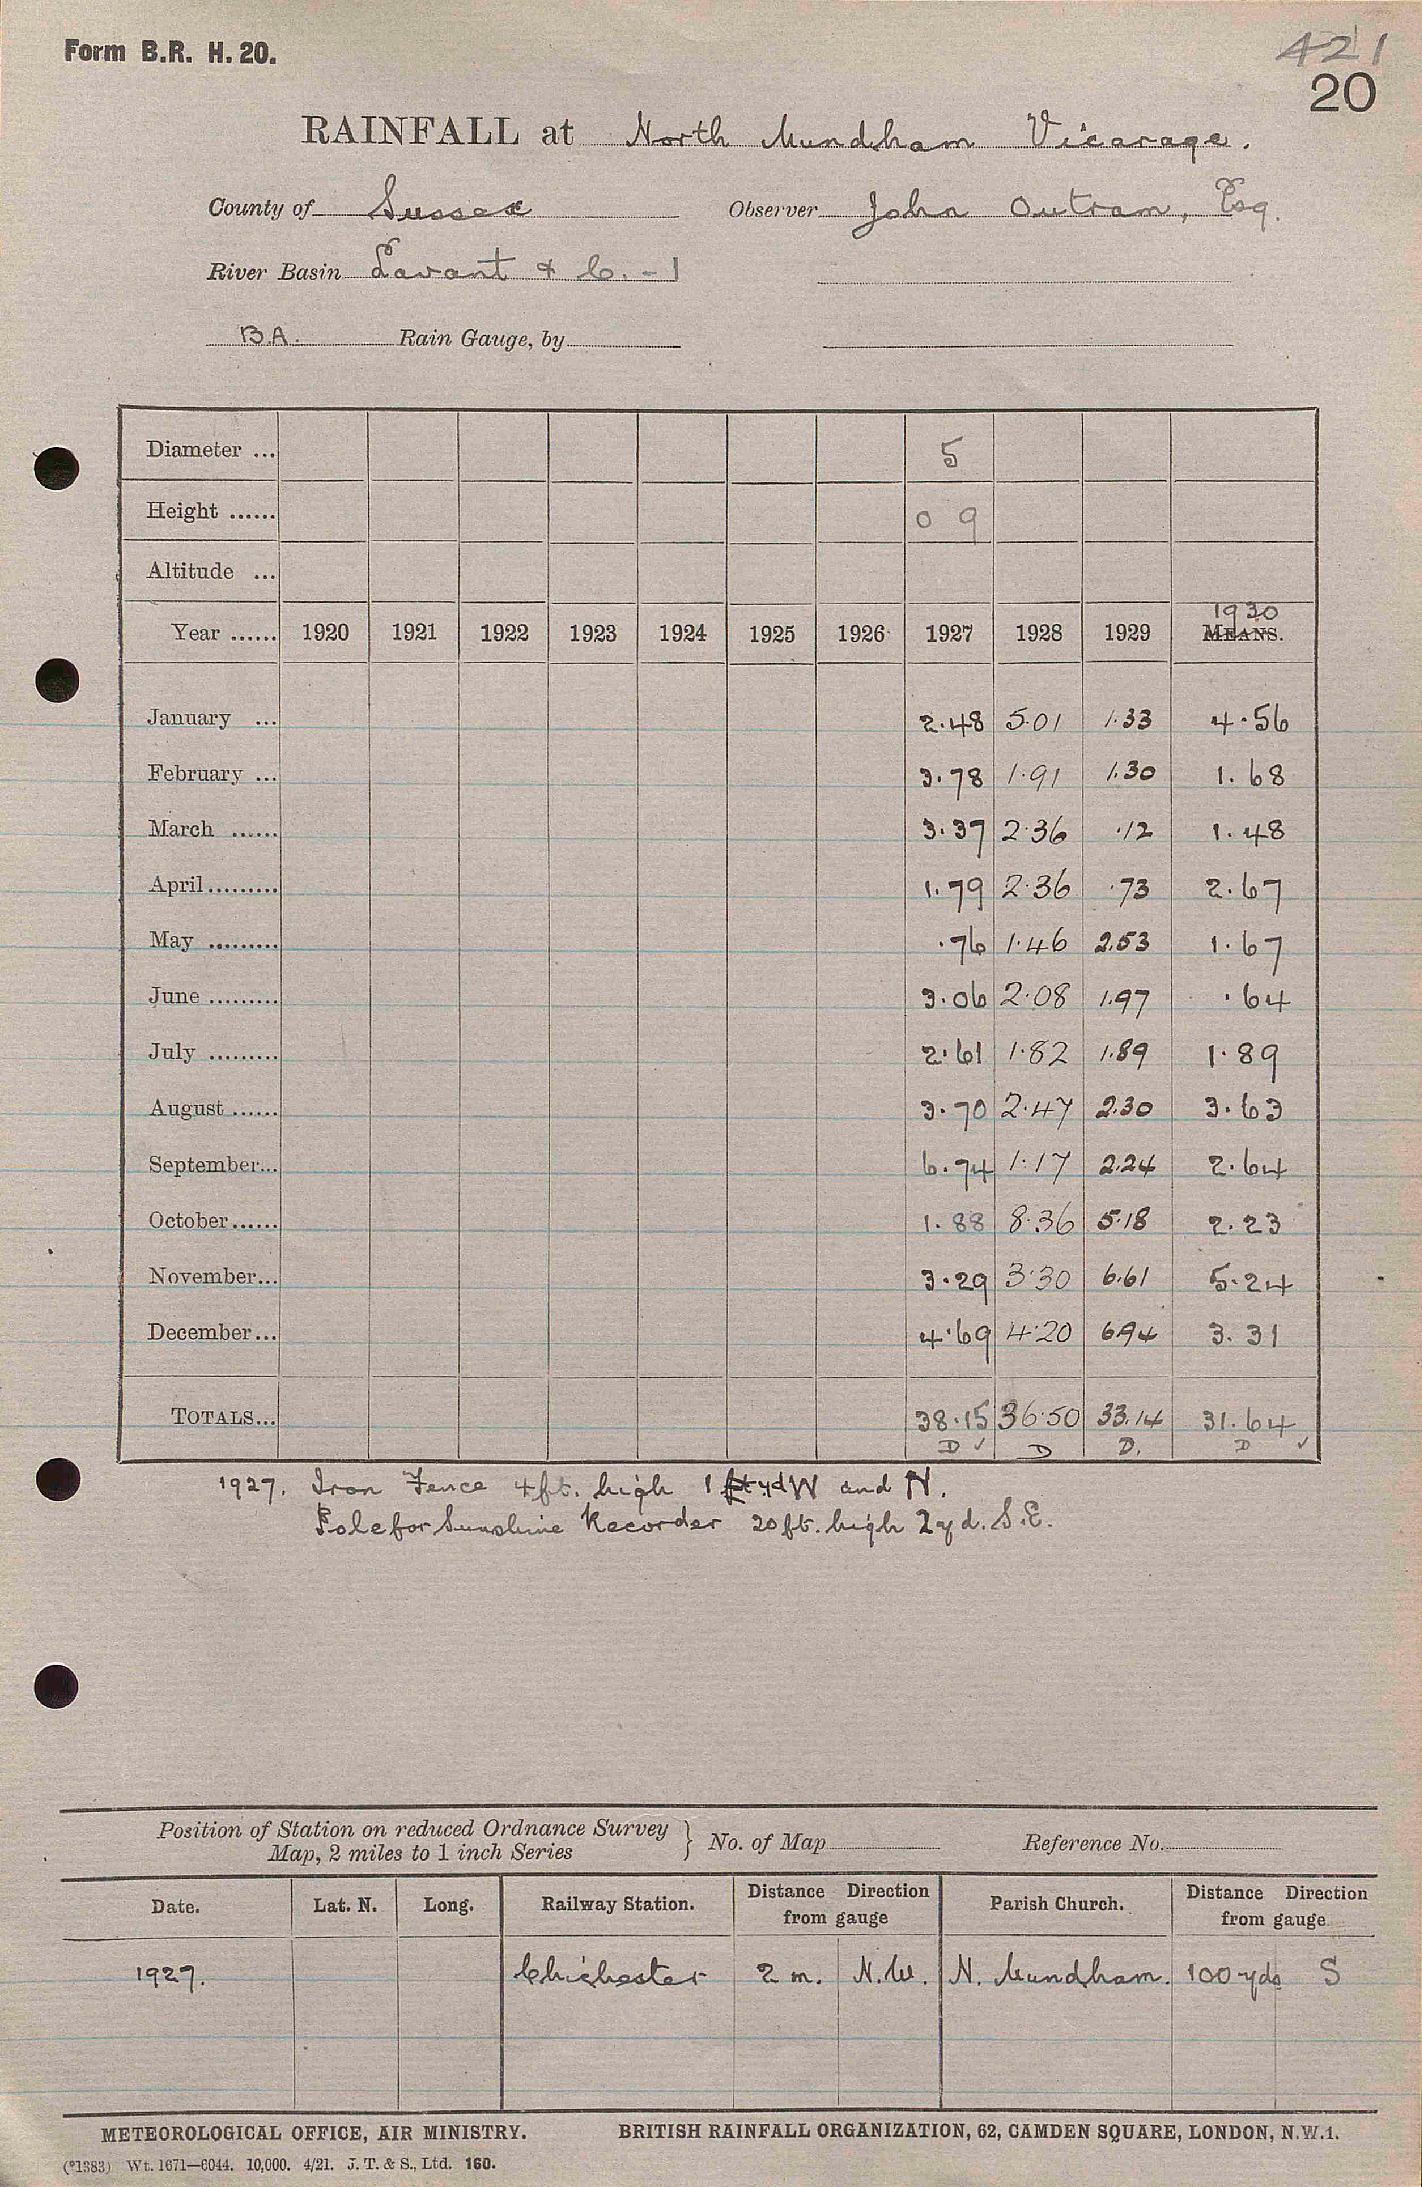 Form B.R. H. 20.
421
20
RAINFALL at North Mundham Vicarage.
County of Sussex Observer John Outram, Esq.
River Basin Lavant & C. - 1
B.A. Rain Gauge, by
Diameter ... 5
Height ...... 0 9
Altitude ...
1930
Year ...... 1920 1921 1922 1923 1924 1925 1926 1927 1928 1929 MEANS.
January ... 2.48 5.01 1.33 4.56
February ... 3.78 1.91 1.30 1.68
March ...... 3.37 2.36 .12 1.48
April......... 1.79 2.36 .73 2.67
May ......... .76 1.46 2.53 1.67
June ......... 3.06 2.08 1.97 .64
July ......... 2.61 1.82 1.89 1.89
August ...... 3.70 2.47 2.30 3.63
September... 6.74 1.17 2.24 2.64
October...... 1.88 8.36 5.18 2.23
November... 3.29 3.30 6.61 5.24
December... 4.69 4.20 6.94 3.31
TOTALS... 38.15 36.50 33.14 31.64
D ✓ D D. D ✓
1927. Iron Fence 4ft. high 1 yd W and N.
Pole for Sunshine Recorder 20 ft. high 2 yd. S.E.
Position of Station on reduced Ordnance Survey
Map, 2 miles to 1 inch Series } No. of Map Reference No.
Date. Lat. N. Long. Railway Station. Distance Direction from gauge Parish Church. Distance Direction from gauge
1927. Chichester 2 m. N.W. N. Mundham. 100 yds S
METEOROLOGICAL OFFICE, AIR MINISTRY. BRITISH RAINFALL ORGANIZATION, 62, CAMDEN SQUARE, LONDON, N.W.1.
(*1383) Wt. 1671—6044. 10,000. 4/21. J. T. & S., Ltd. 160.